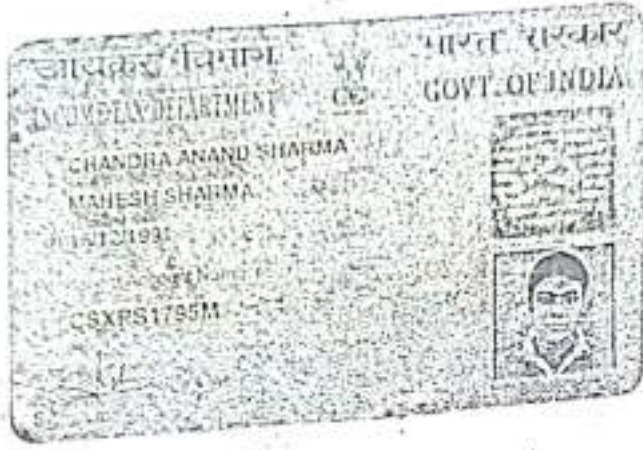 आयकर विभाग
भारत सरकार
INCOME TAX DEPARTMENT
GOVT. OF INDIA
CHANDRA ANAND SHARMA
MAHESH SHARMA
CSXPS1795M